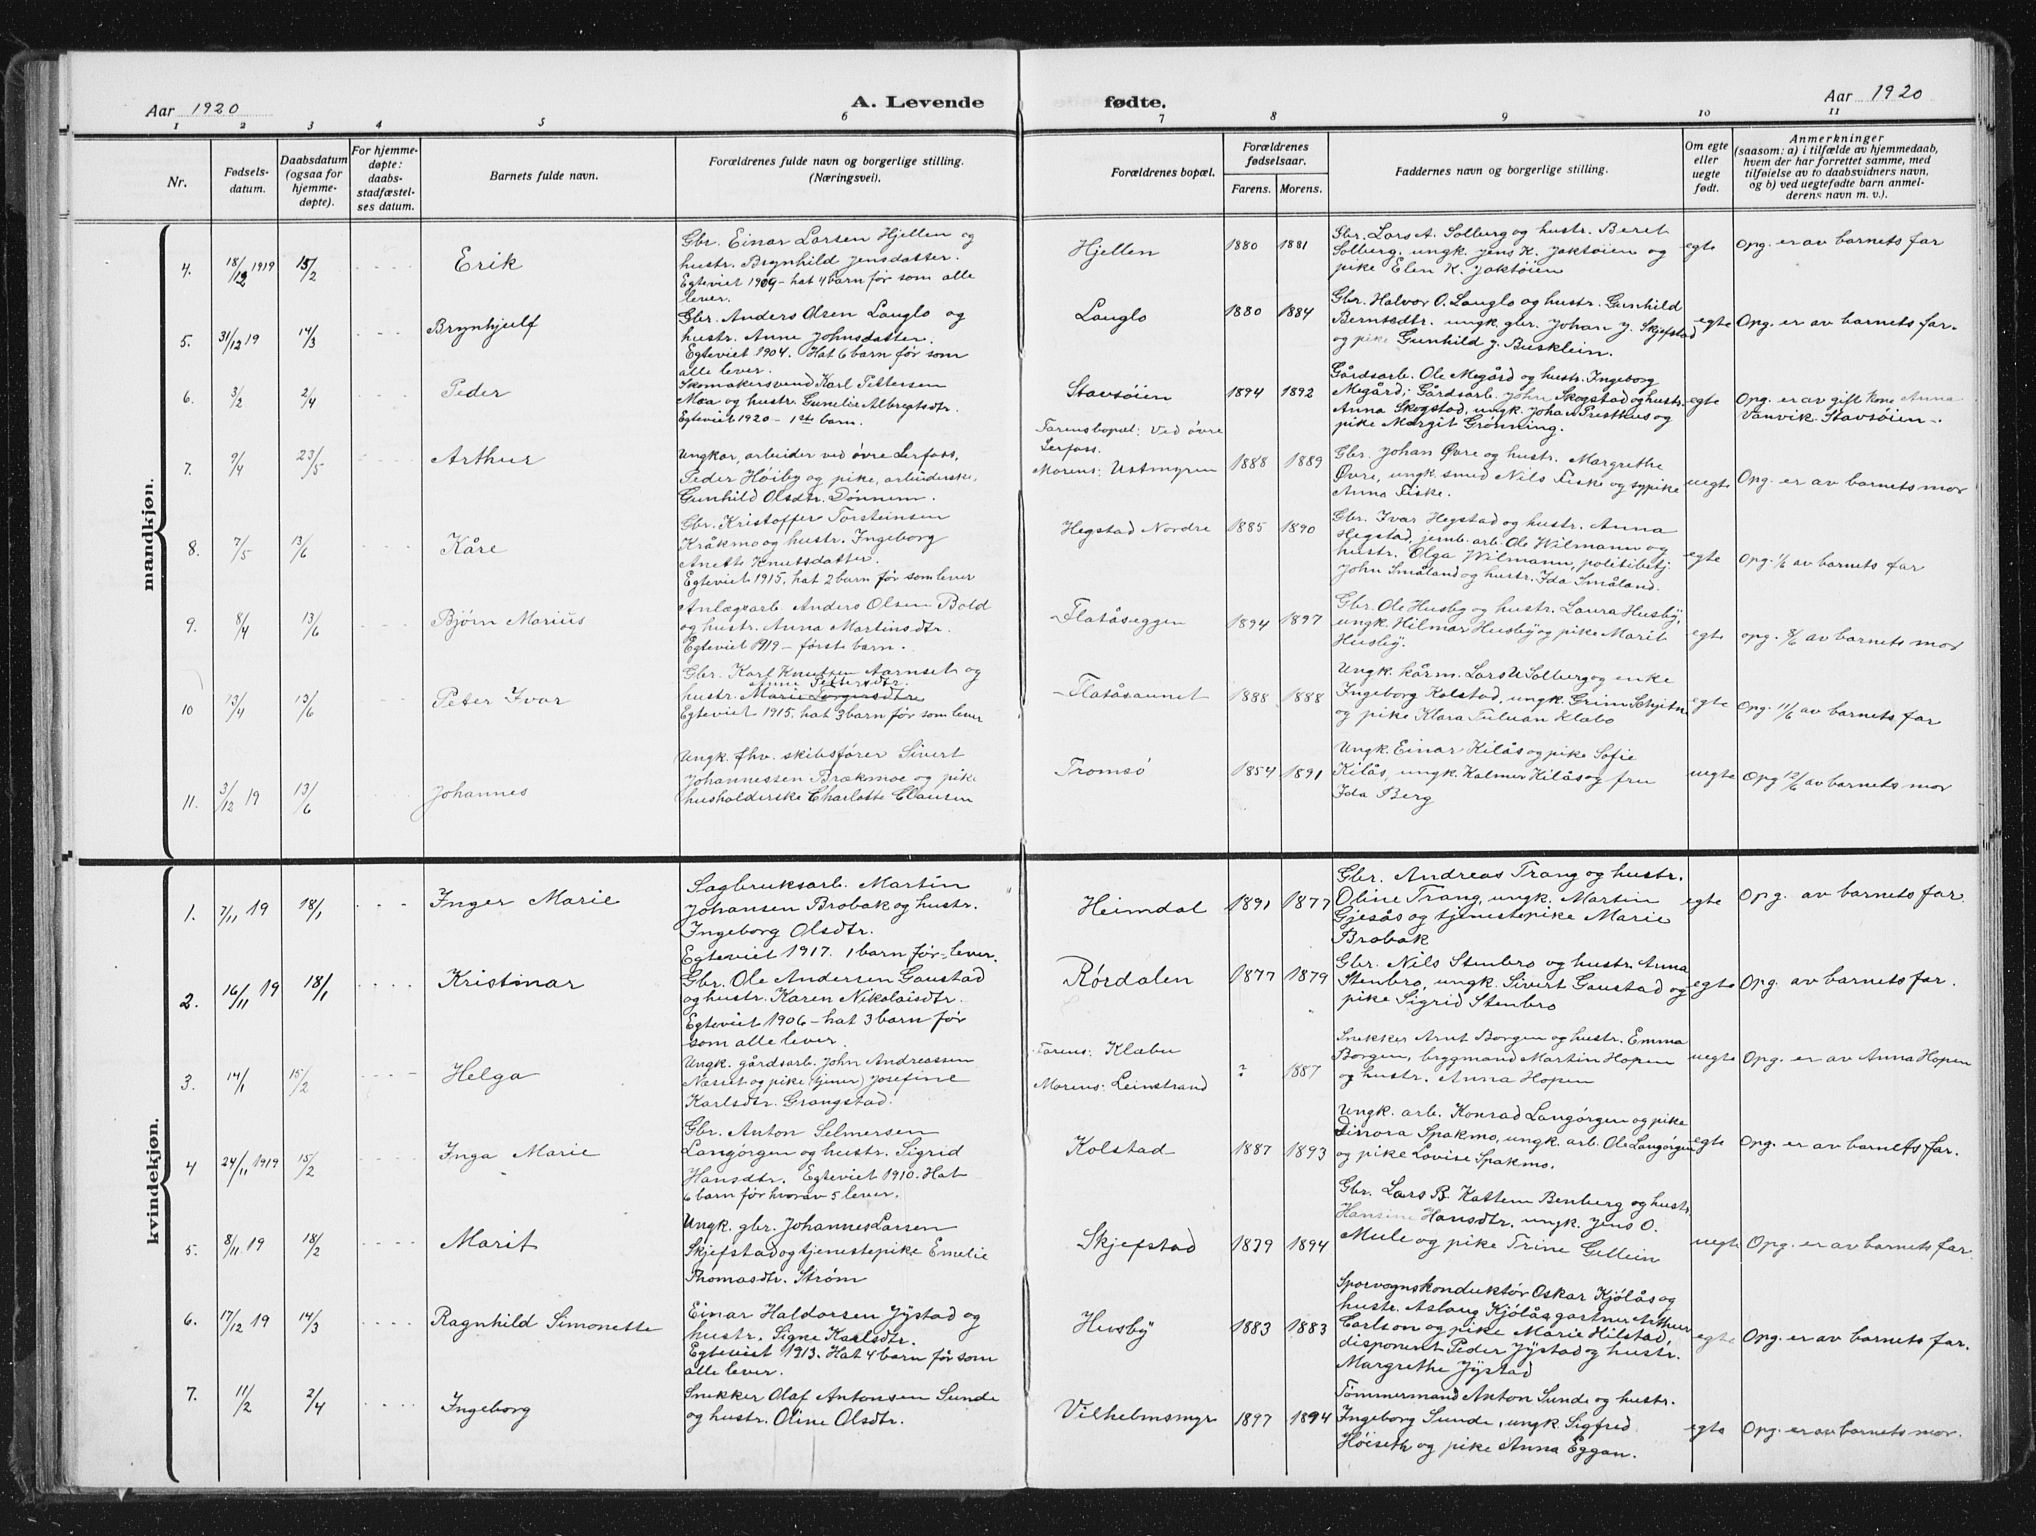 Aar 1920
A. Levende
fødte.
Aar 1920
1 2 3 4 5 6 7 8 9 10 11
Nr.
Fødsels-
datum.
Daabsdatum
(ogsaa for
hjemme-
døpte).
For hjemme-
døpte:
daabs-
stadfæstel-
ses datum.
Barnets fulde navn.
Forældrenes fulde navn og borgerlige stilling.
(Næringsvei).
Forældrenes bopæl.
Forældrenes
fødselsaar.
Farens. Morens.
Faddernes navn og borgerlige stilling.
Om egte
eller
uegte
født.
Anmerkninger
(saasom: a) i tilfælde av hjemmedaab,
hvem der har forrettet samme, med
tilføielse av to daabsvidners navn,
og b) ved uegtefødte barn anmel-
derens navn m. v.).
mandkjøn.
4. 18/12 1919 15/2 Erik
Gbr. Einar Larsen Hjellen og
hustr. Brynhild Jensdatter.
Egteviet 1909 - hat 4 barn før som alle
lever.
Hjellen 1880 1881
Gbr. Lars A. Solberg og hustr. Beret
Solberg, ungk. Jens K. Jaktøien og
pike Elen K. Jaktøien
egte Opg. er av barnets far
5. 31/12 19 14/3 Brynhjulf
Gbr. Anders Olsen Lauglo og
hustr. Anne Johnsdatter.
Egteviet 1904. Hat 6 barn før som
alle lever.
Lauglo 1880 1884
Gbr. Halvor O. Lauglo og hustr. Gunhild
Berntsdtr. ungk. gbr. Johan J. Skjefstad
og pike Gunhild J. Busklein.
egte Opg. er av barnets far.
6. 3/2 2/4 Peder
Skomakersvend Karl Pettersen
Moa og hustr. Gunelie Albregtsdtr.
Egteviet 1920 - 1ste barn.
Stavsøien 1894 1892
Gårdsarb. Ole Megård og hustr. Ingeborg
Megård; Gårdsarb. John Skogstad og hustr.
Anna Skogstad, ungk. Johan Presthus og
pike Margit Grønning.
egte Opg. er av gift kone Anna
Vanvik. Stavsøien.
7. 9/4 23/5 Arthur
Ungkar, arbeider ved øvre Lerfoss,
Peder Høiby og pike, arbeiderske,
Gunhild Olsdtr. Dønnem.
Farens bopæl: Ved øvre
Lerfoss.
Morens: Ustmyren 1888 1889
Gbr. Johan Øvre og hustr. Margrethe
Øvre, ungk. smed Nils Fiske og sypike
Anna Fiske.
uegte Opg. er av barnets mor
8. 7/5 13/6 Kåre
Gbr. Kristoffer Torsteinsen
Kråkmo og hustr. Ingeborg
Anette Knutsdatter.
Egteviet 1915, hat 2 barn før som lever
Hegstad Nordre 1885 1890
Gbr. Ivar Hegstad og hustr. Anna
Hegstad, jernb. arb. Ole Wilmann og
hustr. Olga Wilmann, politibetj.
John Småland og hustr. Ida Småland.
egte Opg. 1/6 av barnets far
9. 8/4 13/6 Bjørn Marius
Anlægsarb. Anders Olsen Bold
og hustr. Anna Martinsdtr.
Egteviet 1919 - første barn.
Flatåseggen 1894 1897
Gbr. Ole Husby og hustr. Laura Husby,
ungk. Hilmar Husby og pike Marit
Husby.
egte opg. 8/6 av barnets mor
10 13/4 13/6 Peter Ivar
Gbr. Karl Knutsen Aarnset og
Anne Pettersdtr.
hustr. Marie Torgersdtr.
Egteviet 1915, hat 3 barn før som lever
Flatåsaunet 1888 1888
Ungk. kårm. Lars Solberg og enke
Ingeborg Kolstad, ungk. Grim Schjetne
og pike Klara Tulluan Klæbo
egte Opg. 11/6 av barnets far
11. 3/12 19 13/6 Johannes
Ungk. fhv. skibsfører Sivert
Johannessen Brækmoe og pike
husholderske Charlotte Clausen
Tromsø 1854 1891
Ungk. Einar Kilås og pike Sofie
Kilås, ungk. Kalmer Kilås og fru
Ida Berg
uegte Opg 12/6 av barnets mor
kvindekjøn.
1. 7/11 19 18/1 Inger Marie
Sagbruksarb. Martin
Johansen Brobak og hustr.
Ingeborg Olsdtr.
Egteviet 1917. 1 barn før - lever.
Heimdal 1891 1877
Gbr. Andreas Trang og hustr.
Oline Trang, ungk. Martin
Gjesås og tjenestepike Marie
Brobak
egte Opg. av barnets far
2. 16/11 19 18/1 Kristinar
Gbr. Ole Andersen Gaustad
og hustr. Karen Nikolaisdtr.
Egteviet 1906 - hat 3 barn før
som alle lever.
Rørdalen 1877 1879
Gbr. Nils Stenbro og hustr. Anna
Stenbro, ungk. Sivert Gaustad og
pike Sigrid Stenbro
egte Opg. av barnets far.
3. 14/1 15/2 Helga
Ungk. gårdsarb. John Andreassen
Næsset og pike (tjener) Josefine
Karlsdtr. Grangstad.
Farens: Klæbu
Morens: Leinstrand ? 1887
Snekker Arnt Borgen og hustr. Emma
Borgen, brygmand Martin Hopen
og hustr. Anna Hopen
uegte Opg. er av Anna Hopen
4 24/11 1919 15/2 Inga Marie
Gbr. Anton Selmersen
Langørgen og hustr. Sigrid
Hansdtr. Egteviet 1910. Hat
6 barn før hvorav 5 lever.
Kolstad 1887 1893
Ungk. arb. Konrad Langørgen og pike
Dinora Spakmo, ungk. arb. Ole Langørgen
og pike Lovise Spakmo.
egte Opg. er av barnets far.
5. 8/11 19 18/2 Marit
Ungk. gbr. Johannes Larsen
Skjefstad og tjenestepike Emelie
Thomasdtr. Strøm
Skjefstad 1879 1894
Gbr. Lars B. Kattem Benberg og hustr.
Hansine Hansdtr. ungk. Jens O.
Mule og pike Trine Gellein
uegte Opg. er av barnets far.
6. 17/12 19 14/3 Ragnhild Simonette
Einar Haldorsen Jystad og
hustr. Signe Karlsdtr.
Egteviet 1913. Hat 4 barn før som
alle lever.
Husby 1883 1883
Sporvognskonduktør Oskar Kjølås og
hustr. Aslaug Kjølås, gartner Arthur
Carlson og pike Marie Hilstad,
disponent Peder Jystad og hustr.
Margrethe Jystad
egte Opg. er av barnets far.
7. 11/2 2/4 Ingeborg
Snekker Olaf Antonsen Sunde
og hustr. Oline Olsdtr.
Vilhelmsmyr 1897 1894
Tømmermand Anton Sunde og hustr.
Ingeborg Sunde, ungk. Sigfred
Høiseth og pike Anna Eggan.
egte Opg. er av barnets mor.